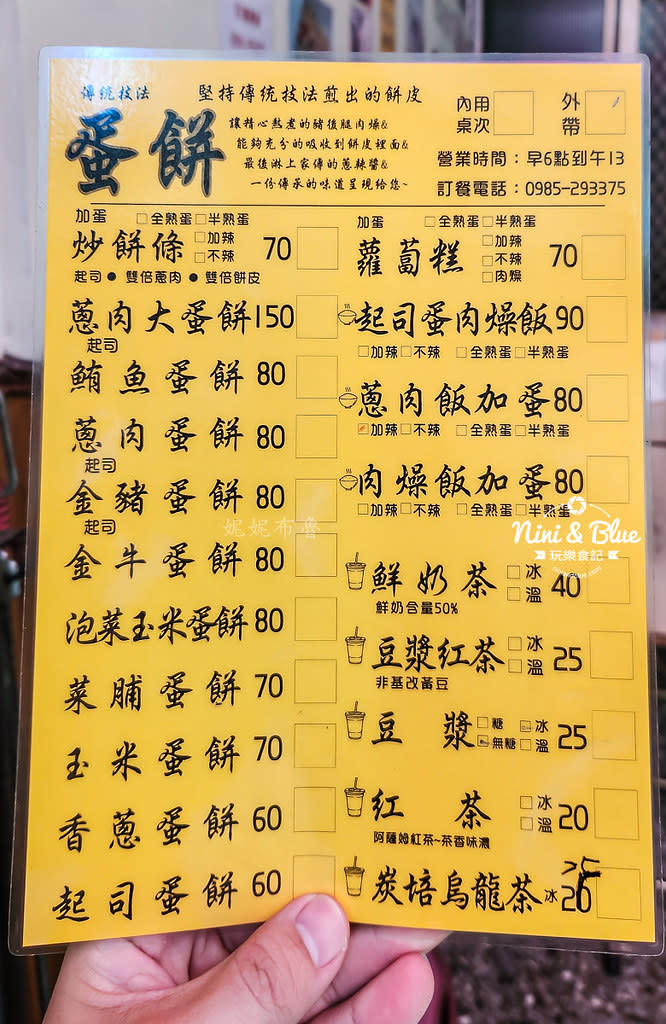 傳統技法
蛋餅
堅持傳統技法煎出的餅皮
讓精心熬煮的豬後腿肉燥&
能夠充分的吸收到餅皮裡面&
最後淋上家傳的蔥辣醬&
一份傳承的味道呈現給您~
內用桌次
外帶
營業時間：早6點到午13
訂餐電話：0985-293375
加蛋 □全熟蛋□半熟蛋
炒餅條 □加辣 □不辣 70
起司 ● 雙倍蔥肉 ● 雙倍餅皮
蔥肉大蛋餅150
起司
鮪魚蛋餅 80
蔥肉蛋餅 80
起司
金豬蛋餅 80
起司
金牛蛋餅 80
泡菜玉米蛋餅 80
菜脯蛋餅 70
玉米蛋餅 70
香蔥蛋餅 60
起司蛋餅 60
加蛋 □全熟蛋□半熟蛋
蘿蔔糕 □加辣 □不辣 □肉燥 70
起司蛋肉燥飯90
□加辣□不辣 □全熟蛋□半熟蛋
蔥肉飯加蛋80
□加辣□不辣 □全熟蛋□半熟蛋
肉燥飯加蛋80
□加辣□不辣 □全熟蛋□半熟蛋
鮮奶茶 □冰 □溫 40
鮮奶含量50%
豆漿紅茶 □冰 □溫 25
非基改黃豆
豆漿 □糖 □無糖 □冰 □溫 25
紅茶 □冰 □溫 20
阿薩姆紅茶~茶香味濃
炭培烏龍茶 冰 20
25
妮妮布魯
Nini & Blue
玩樂食記